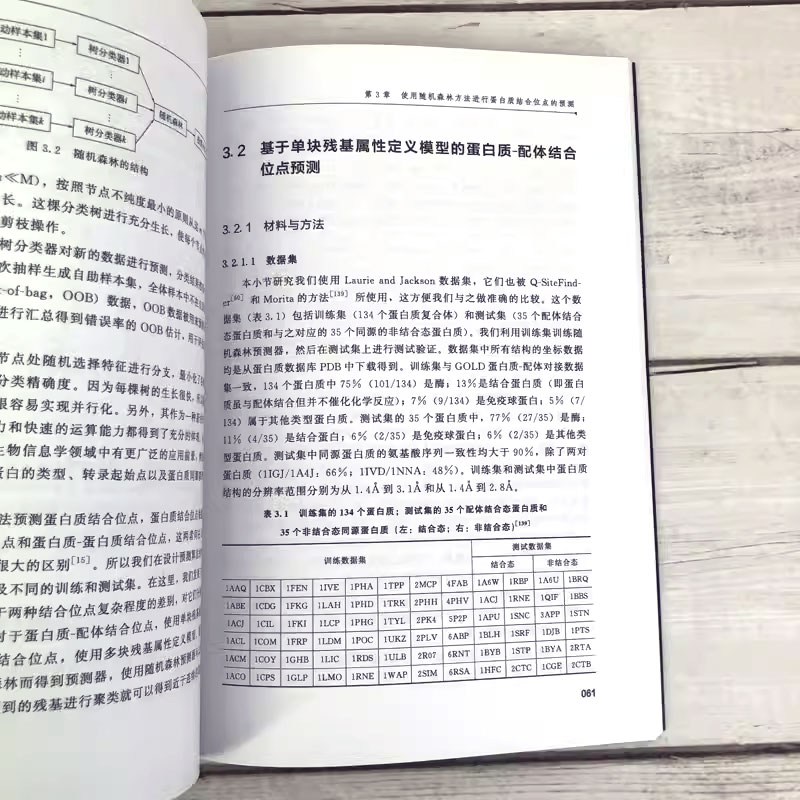 动样本集1
树分类器1
动样本集i
树分类器i
随机森林
动样本集k
树分类器k
图 3.2 随机森林的结构
≪M),按照节点不纯度最小的原则从
长。这棵分类树进行充分生长,使每个节
剪枝操作。
树分类器对新的数据进行预测,分类结果
次抽样生成自助样本集,全体样本中不
-of-bag,OOB)数据,OOB数据被用
进行汇总得到错误率的OOB估计,用于
节点处随机选择特征进行分支,最小化了
分类精确度。因为每棵树的生长很快,
很容易实现并行化。另外,其作为一种
力和快速的运算能力都得到了充分的体现,
生物信息学领域中有更广泛的应用前景,
蛋白的类型、转录起始点以及蛋白质同源
法预测蛋白质结合位点,蛋白质结合位点
点和蛋白质-蛋白质结合位点,这两者
很大的区别[15]。所以我们在设计预测
及不同的训练和测试集。在这里,我们
于两种结合位点复杂程度的差别,对它们
对于蛋白质-配体结合位点,使用单块残基
结合位点,使用多块残基属性定义模型,
森林而得到预测器,使用随机森林预测
到的残基进行聚类就可以得到近于连续
第 3 章 使用随机森林方法进行蛋白质结合位点的预测
3.2 基于单块残基属性定义模型的蛋白质-配体结合
位点预测
3.2.1 材料与方法
3.2.1.1 数据集
本小节研究我们使用 Laurie and Jackson 数据集,它们也被 Q-SiteFind-
[60] 和 Morita 的方法[139] 所使用,这方便我们与之做准确的比较。这个数
据集(表 3.1)包括训练集(134 个蛋白质复合体)和测试集(35 个配体结合
态蛋白质和与之对应的 35 个同源的非结合态蛋白质)。我们利用训练集训练随
机森林预测器,然后在测试集上进行测试验证。数据集中所有结构的坐标数据
均是从蛋白质数据库 PDB 中下载得到。训练集与 GOLD 蛋白质-配体对接数据
集一致,134 个蛋白质中 75%(101/134)是酶;13%是结合蛋白(即蛋白
质虽与配体结合但并不催化化学反应);7%(9/134)是免疫球蛋白;5%(7/
134)属于其他类型蛋白质。测试集的 35 个蛋白质中,77%(27/35)是酶;
11%(4/35)是结合蛋白;6%(2/35)是免疫球蛋白;6%(2/35)是其他类
型蛋白质。测试集中同源蛋白质的氨基酸序列一致性均大于 90%,除了两对
蛋白质(1IGJ/1A4J:66%;1IVD/1NNA:48%)。训练集和测试集中蛋白质
结构的分辨率范围分别为从 1.4Å 到 3.1Å 和从 1.4Å 到 2.8Å。
表 3.1 训练集的 134 个蛋白质;测试集的 35 个配体结合态蛋白质和
35 个非结合态同源蛋白质(左:结合态;右:非结合态)[139]
训练数据集 测试数据集
结合态 非结合态
1AAQ 1CBX 1FEN 1IVE 1PHA 1TPP 2MCP 4FAB 1A6W 1RBP 1A6U 1BRQ
1ABE 1CDG 1FKG 1LAH 1PHD 1TRK 2PHH 4PHV 1ACJ 1RNE 1QIF 1BBS
1ACJ 1CIL 1FKI 1LCP 1PHG 1TYL 2PK4 5P2P 1APU 1SNC 3APP 1STN
1ACL 1COM 1FRP 1LDM 1POC 1UKZ 2PLV 6ABP 1BLH 1SRF 1DJB 1PTS
1ACM 1COY 1GHB 1LIC 1RDS 1ULB 2R07 6RNT 1BYB 1STP 1BYA 2RTA
1ACO 1CPS 1GLP 1LMO 1RNE 1WAP 2SIM 6RSA 1HFC 2CTC 1CGE 2CTB
061